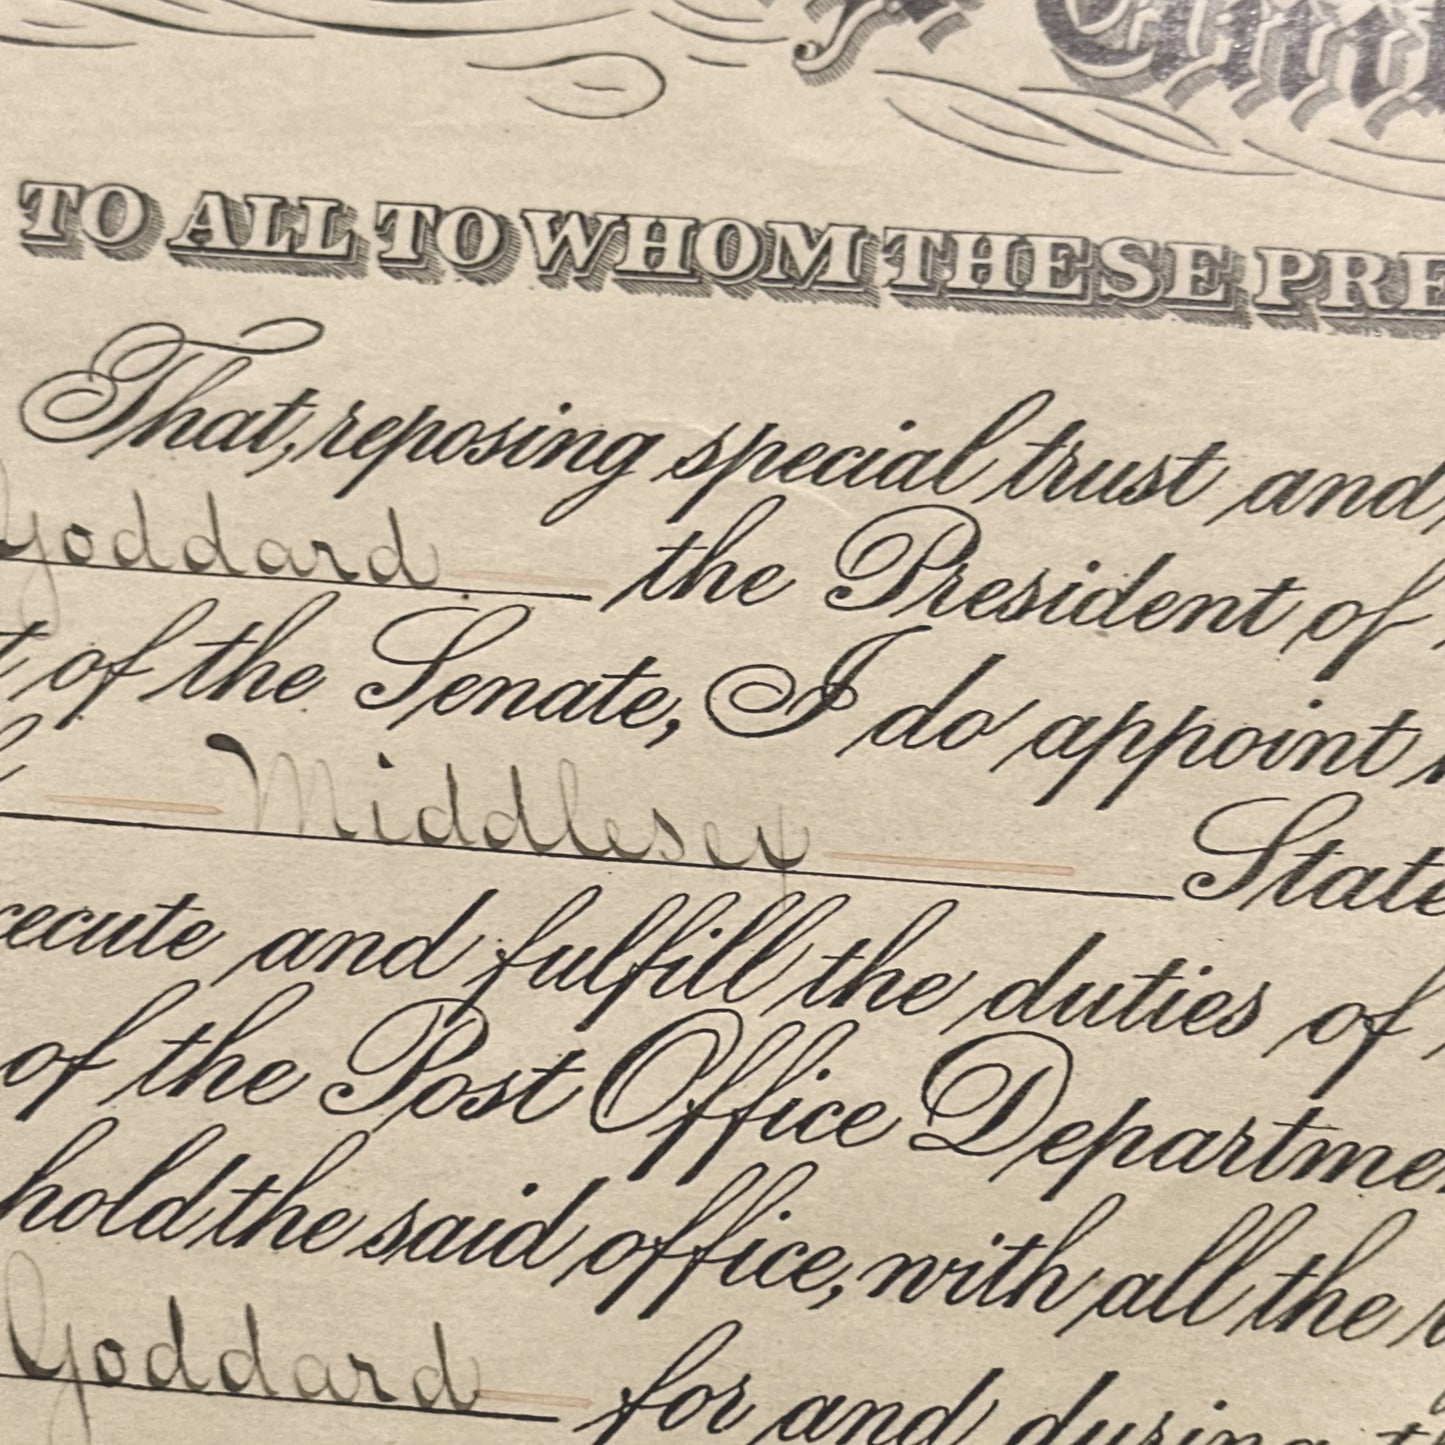 TO ALL TO WHOM THESE PRE
That, reposing special trust and
Goddard the President of
of the Senate, I do appoint
Middlesex State
ecute and fulfill the duties of
of the Post Office Departme
hold the said office, with all the
Goddard for and during